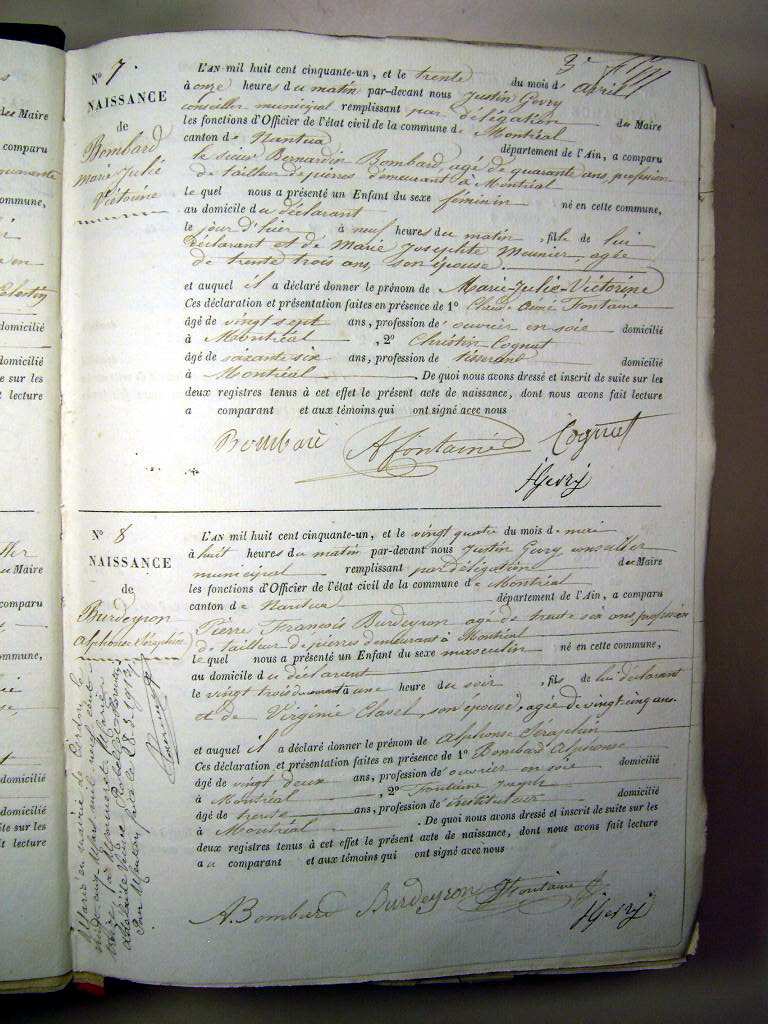 N° 7.
NAISSANCE
de
Bombard
Marie Julie
Victorine
L'AN mil huit cent cinquante-un, et le trente du mois d'avril
à onze heures du matin par-devant nous Justin Gevry
conseiller municipal remplissant par délégation
les fonctions d'Officier de l'état civil de la commune de Montréal du Maire
canton de Nantua département de l'Ain, a comparu
le sieur Bernardin Bombard agé de quarante ans, profession
de tailleur de pierres demeurant à Montréal
le quel nous a présenté un Enfant du sexe feminin né en cette commune,
au domicile du déclarant
le jour d'hier à neuf heures du matin, fille de lui
déclarant et de Marie Josephte Meunier, agée
de trente trois ans, son épouse.
et auquel il a déclaré donner le prénom de Marie-Julie-Victorine
Ces déclaration et présentation faites en présence de 1° Claude Aimé Fontaine
âgé de vingt sept ans, profession d'ouvrier en soie domicilié
à Montréal, 2° Christin Cognat
âgé de soixante six ans, profession de tisserand domicilié
à Montréal. De quoi nous avons dressé et inscrit de suite sur les
deux registres tenus à cet effet le présent acte de naissance, dont nous avons fait lecture
a comparant et aux témoins qui ont signé avec nous
Bombard Afontaine Cognat
JGevry
N° 8
NAISSANCE
de
Burdeyron
alphonse Séraphin
L'AN mil huit cent cinquante-un, et le vingt quatre du mois de mai
à huit heures du matin par-devant nous Justin Gevry conseiller
municipal remplissant par délégation du Maire
les fonctions d'Officier de l'état civil de la commune de Montréal
canton de Nantua département de l'Ain, a comparu
Pierre François Burdeyron agé de trente six ans profession
de tailleur de pierres demeurant à Montréal
le quel nous a présenté un Enfant du sexe masculin né en cette commune,
au domicile du déclarant
le vingt trois du courant à une heure du soir, fils de lui déclarant
et de Virginie Clavel, son épouse, agée de vingt cinq ans.
et auquel il a déclaré donner le prénom de Alphonse Séraphin
Ces déclaration et présentation faites en présence de 1° Bombard Alphonse
âgé de vingt deux ans, profession d'ouvrier en soie domicilié
à Montréal, 2° Fontaine Joseph
âgé de trente ans, profession d'instituteur domicilié
à Montréal. De quoi nous avons dressé et inscrit de suite sur les
deux registres tenus à cet effet le présent acte de naissance, dont nous avons fait lecture
a u comparant et aux témoins qui ont signé avec nous
A. Bombard Burdeyron Fontaine J.
JGevry